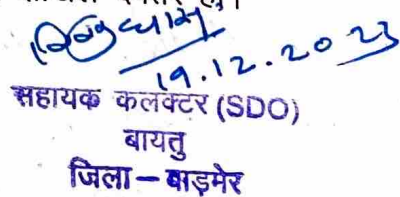 19.12.2023
सहायक कलक्टर (SDO)
बायतु
जिला - बाड़मेर